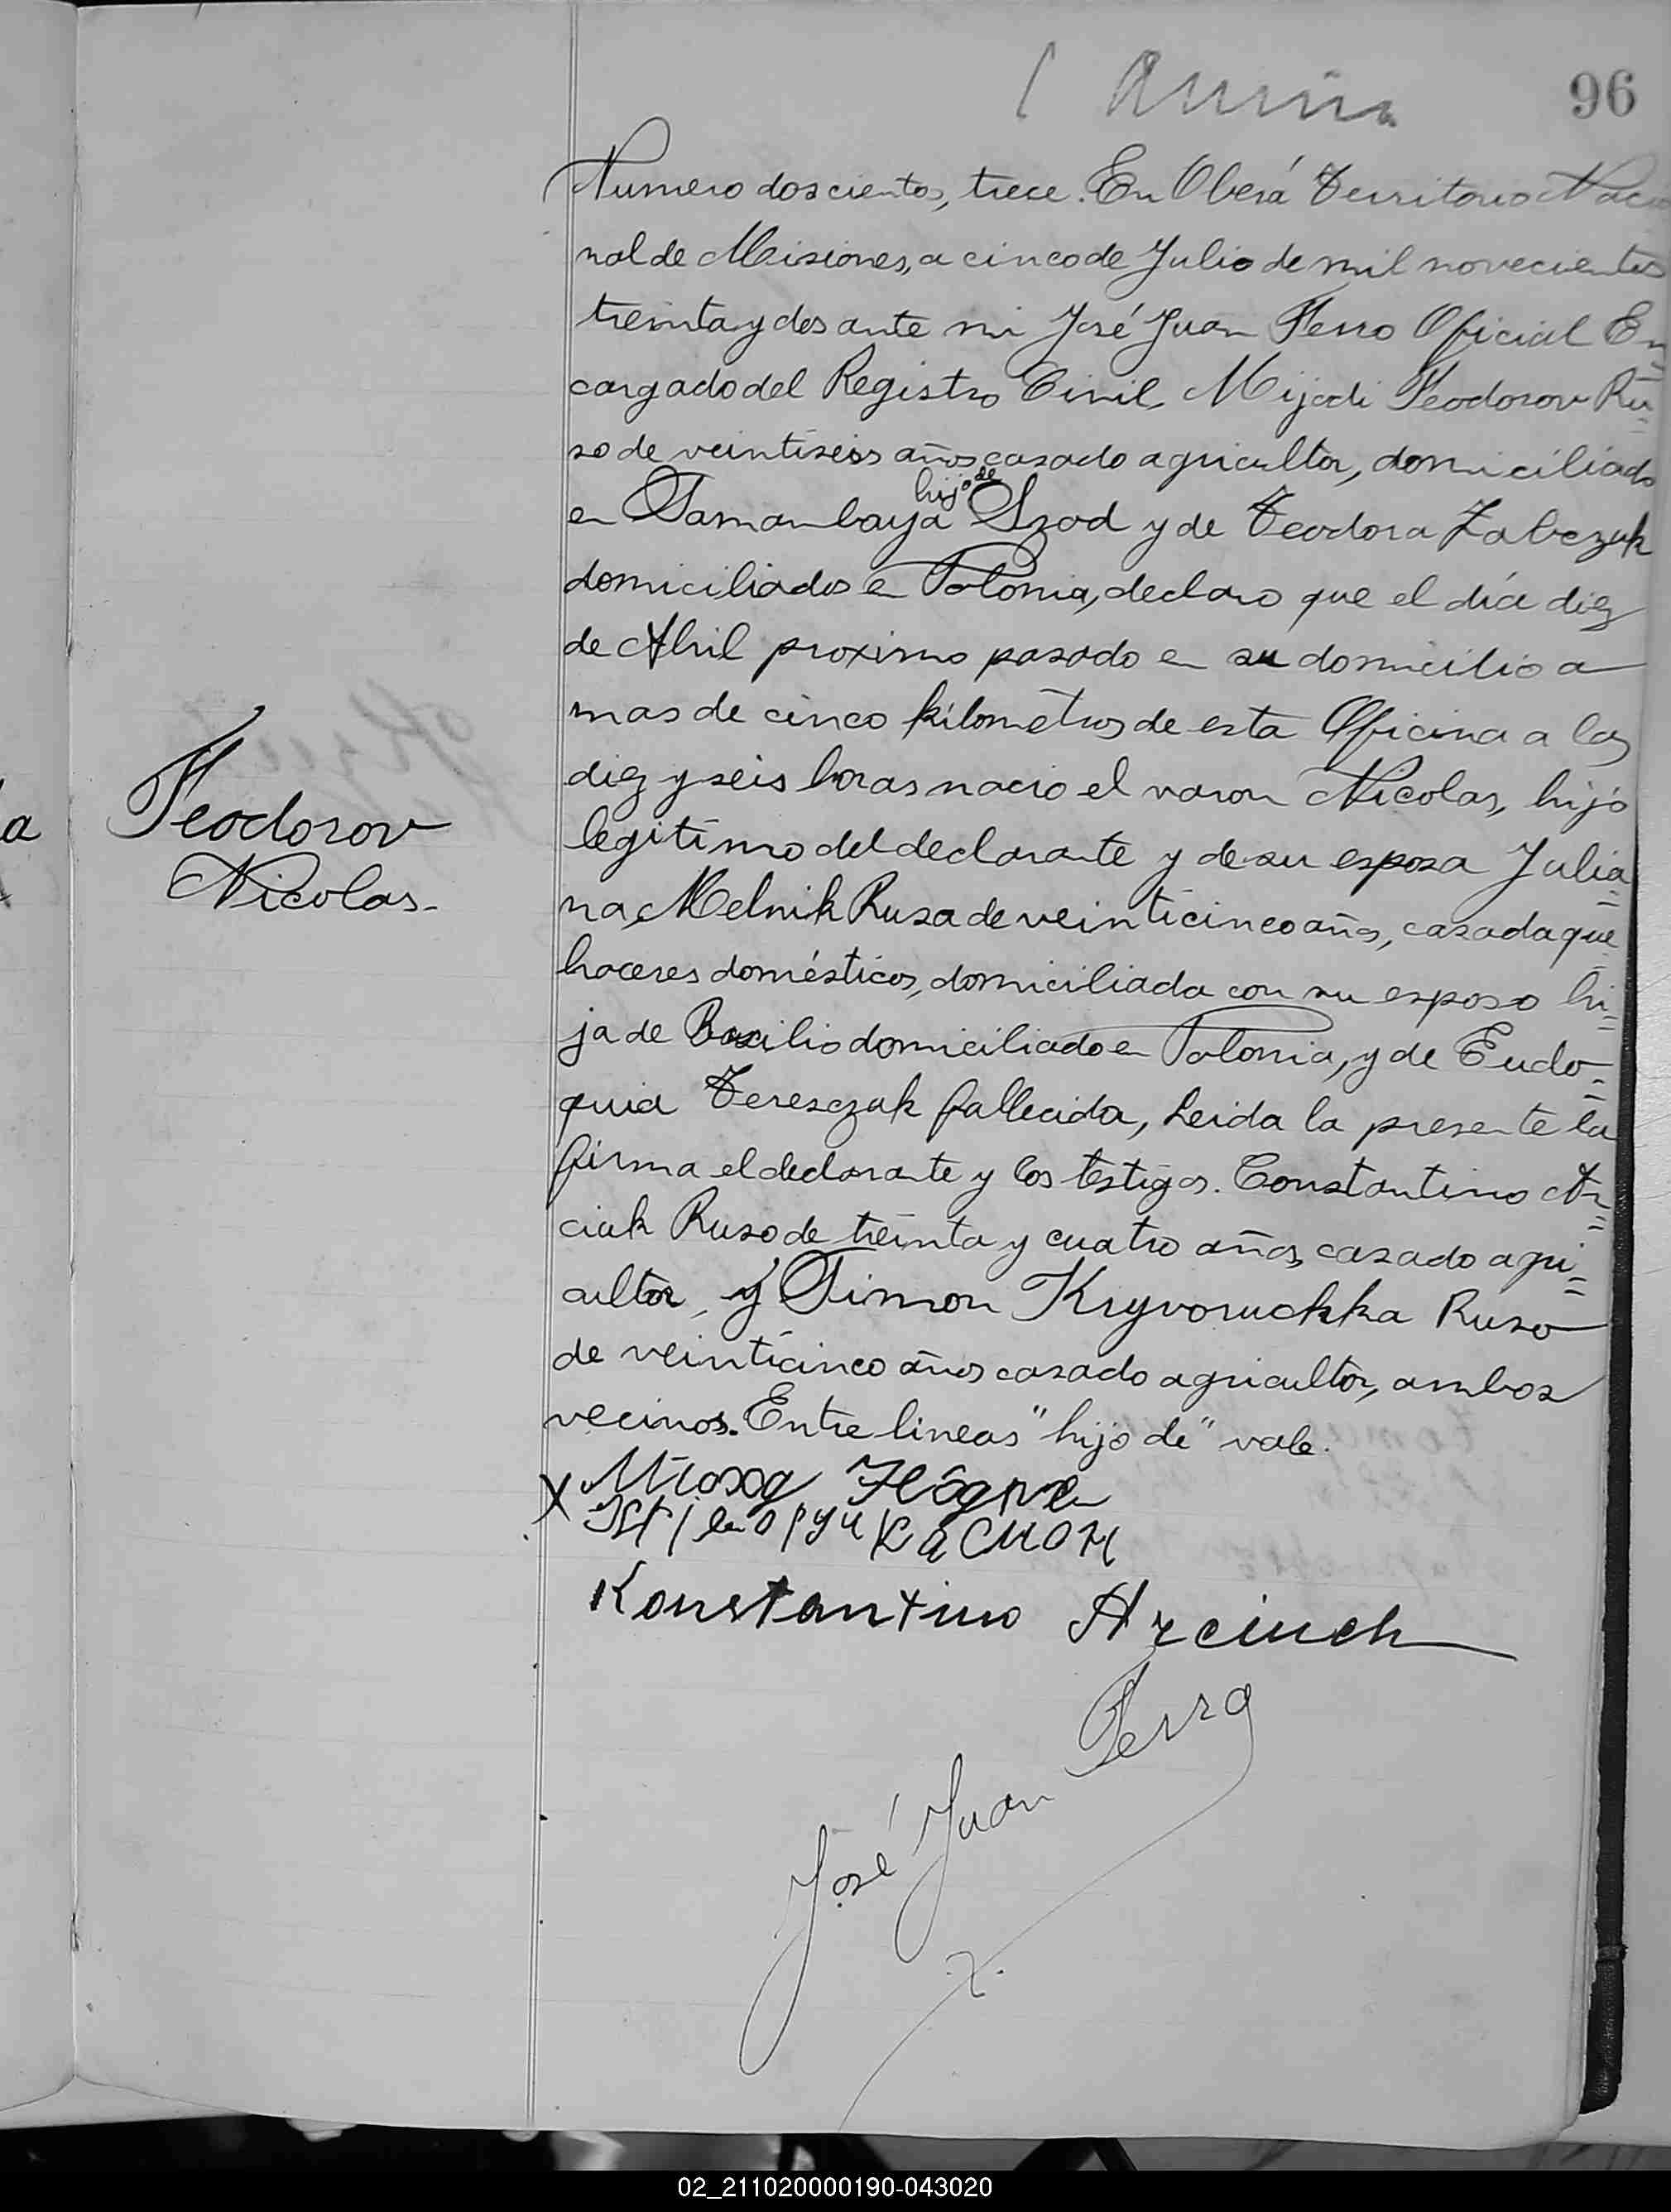 96
Numero doscientos, trece. En Oberá Territorio Nacio
nal de Misiones, a cinco de Julio de mil novecientos
treinta y dos ante mi José Juan Ferro Oficial En=
cargado del Registro Civil, Mijodi Feodorov Ru=
so de veintiseis años casado agricultor, domiciliado
hijo de
en Tamanbaya Szod y de Teodora Zabczuk
domiciliados en Polonia, declaro que el día diez
de Abril proximo pasado en su domicilio a
mas de cinco kilometros de esta Oficina a las
diez y seis horas nacio el varon Nicolas, hijo
legitimo del declarante y de su esposa Julia=
na, Melnik Rusa de veinticinco años, casada que=
haceres domésticos, domiciliada con su esposo hi=
ja de Basilio domiciliado en Polonia, y de Eudo=
quia Teresczuk fallecida, Leida la presente la
firma el declarante y los testigos. Constantino Ar=
ciuk Ruso de treinta y cuatro años, casado agri=
cultor, y Simon Kryvoruchka Ruso
de veinticinco años casado agricultor, ambos
vecinos. Entre lineas "hijo de" vale.
a
Feodorov
Nicolas.
X
Konstantino Arciuch
José Juan Ferro
02_211020000190-043020